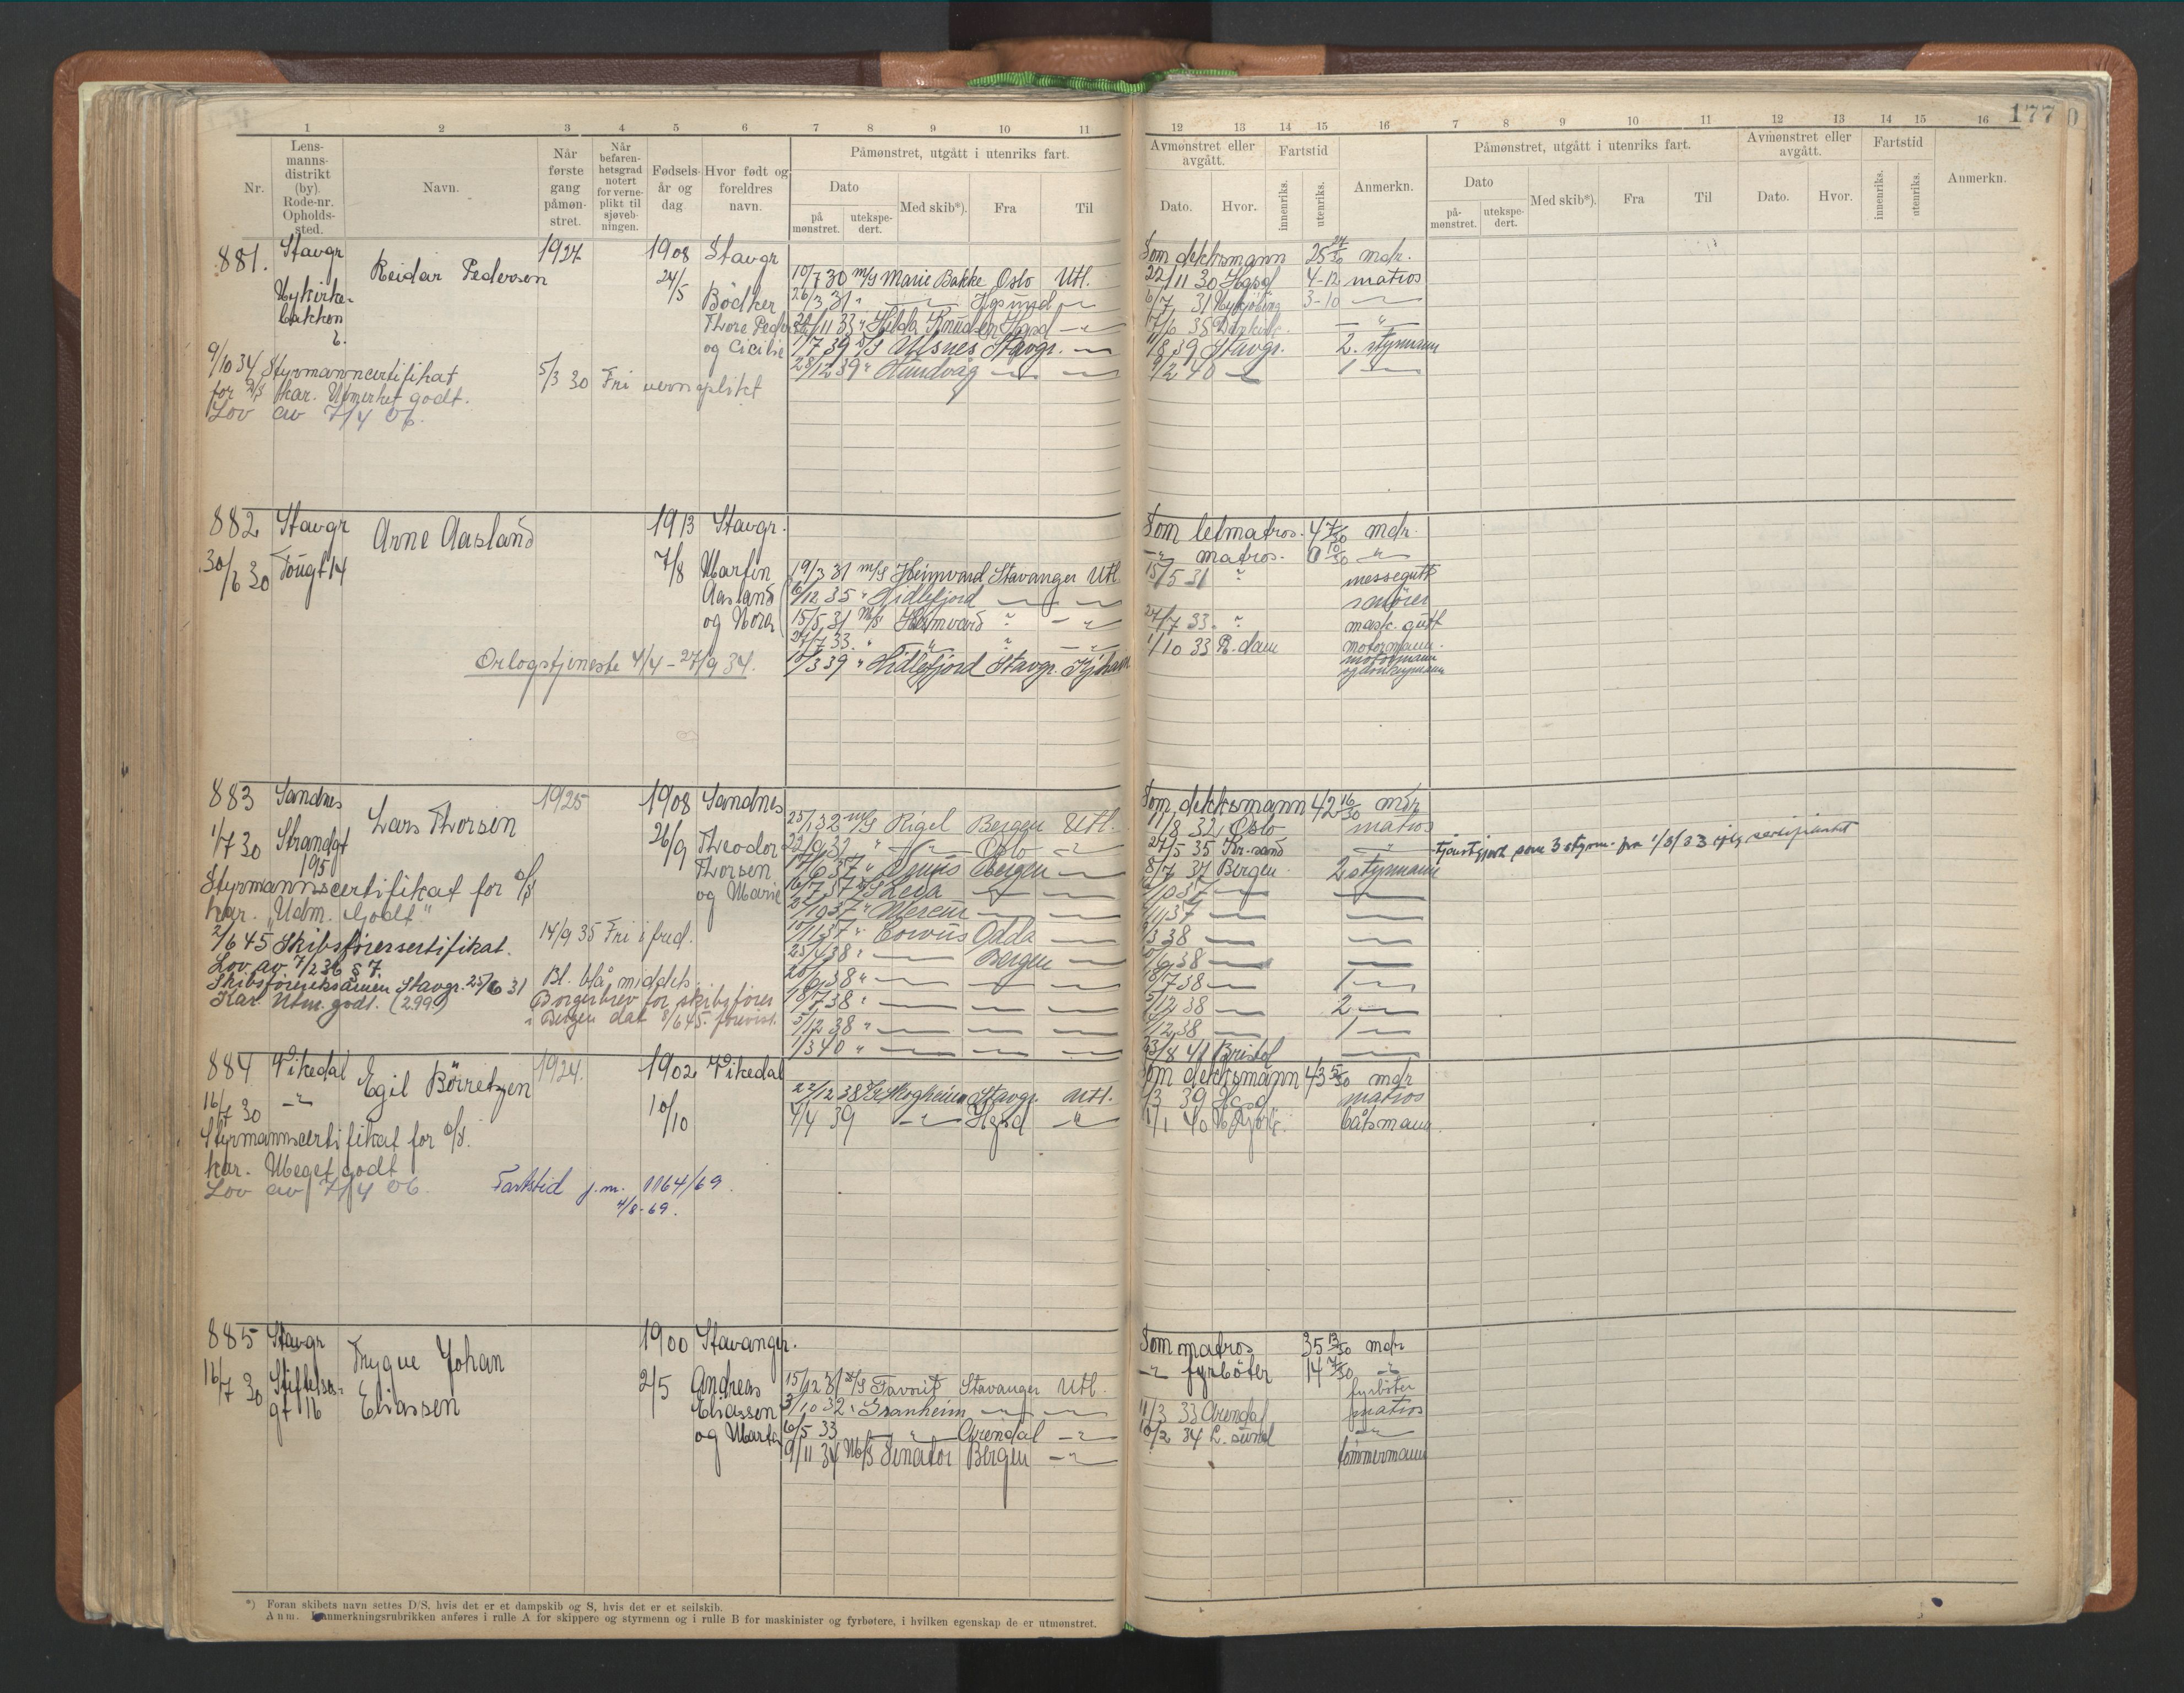 177
1 2 3 4 5 6 7 8 9 10 11
12 13 14 15 16 7 8 9 10 11 12 13 14 15 16
Nr.
Lens-
manns-
distrikt
(by).
Rode-nr.
Opholds-
sted.
Navn.
Når
første
gang
påmøn-
stret.
Når
befaren-
hetsgrad
notert
for verne-
plikt til
sjøveb-
ningen.
Fødsels-
år og
dag
Hvor født og
foreldres
navn.
Påmønstret, utgått i utenriks fart.
Dato
på
mønstret.
utekspe-
dert.
Med skib*).
Fra
Til
Avmønstret eller
avgått.
Dato.
Hvor.
Fartstid
innenriks.
utenriks.
Anmerkn.
Påmønstret, utgått i utenriks fart.
Dato
på-
mønstret.
utekspe-
dert.
Med skib*).
Fra
Til
Avmønstret eller
avgått.
Dato.
Hvor.
Fartstid
innenriks.
utenriks.
Anmerkn.
881. Stavgr Reidar Pedersen 1927 1908 Stavgr
24/5
Nykirke-
bakken
2.
Bødker
Thore Peder
og Cicilie
9/10 34 Styrmanncertifikat
for D/S kar. Utmerket godt.
Lov av 7/4 06.
5/3 30 Fri verneplikt
10/7 30 M/S Marie Bakke Oslo Utl.
26/3 31 " — Hgsund —
22/11 33 " Hilda Knudsen Hgsd — " —
1/7 39 D/S Ulsnes Stavgr. —
28/12 39 " Hundvåg — —
Som dekksmann 25 24/30 mdr.
22/11 30 Hgsd 4-12 matros
6/7 31 Nykjöbing 3-10 —
17/6 35 Dunkirk. — " —
11/8 39 Stavgr. 2. styrmann
9/2 40 — 1 —
882 Stavgr Arne Aasland 1913 Stavgr.
30/6 30 Tougt 14 7/8 Martin
Aasland
og Nora
Orlogstjeneste 4/4 – 27/9 34.
19/3 31 M/S Heimvard Stavanger Utl
6/12 35 " Lidlefjord — —
15/5 31 M/S Heimvard " — " —
27/7 33. " " " — " —
10/3 39 " Lidlefjord Stavgr. Kjøhavn
Som letmatros. 4 7/30 mdr.
— " — matros. 0 10/30 — " —
15/5 31 " messegutt
smører
27/7 33. " mask. gutt
1/10 33 R.dam motormann.
motormann
og donkeymann
883 Sandnes Lars Thorsen 1925 1908 Sandnes
1/7 30 Strandgt
195
26/9 Theodor
Thorsen
og Marie
Styrmannscertifikat for D/S
kar. "Udm. Godt"
2/6 45 Skibsførersertifikat.
Lov av 7/2 36 § 7.
Skibsførereksamen Stavgr. 25/6 31
Kar. Utm. godt. (2.99)
14/9 35 Fri i fred.
Bl. blå middels
Borgerbrev for skibsfører
i Bergen dat 8/6 45. forevist.
25/1 32 M/S Rigel Bergen Utl.
22/9 32 " — " — Oslo — " —
17/6 37 " Cygnus Bergen —
16/7 37 D/S Leda — —
2/10 37 " Mercur — —
10/11 37 " Corvus Odda —
25/4 38 " — Bergen —
20/6 38 " — — —
18/7 38 " — — —
5/12 38 " — — —
1/3 40 " — — —
Som dekksmann 42 16/30 mdr
1/8 32 Oslo matros
27/5 35 Kr.sand — " —
8/7 37 Bergen 2 styrmann
1/10 37 — —
1/11 37 — —
1/3 38 — —
10/6 38 — —
18/7 38 — 1 —
5/12 38 — 2 —
1/12 38 — 1 —
23/8 41 Bristol —
tjenestgjort som 3 styrm. fra 1/8/33
884 Vikedal Egil Börretzen 1924. 1902 Vikedal
16/7 30 — " — 10/10
Styrmannscertifikat for D/S.
kar. Meget godt
Lov av 7/4 06. Fartstid j.nr. 1164/69.
4/8-69.
22/12 38 Skogheim Stavgr. Utl.
4/4 39 — " — Hgsd "
Som dekksmann 43 5/30 mdr
1/3 39 Hgsd matros
1/1 40 N.York. båtsmann.
885 Stavgr Trygve Johan
Eliassen 1900 Stavanger.
16/7 30 Stiftelses-
gt 16
2/5 Andreas
Eliassen
og Marta
15/12 31 D/S Favorit Stavanger Utl.
3/10 32 " Granheim — —
6/5 33 — " — Arendal — " —
9/11 34 M/S Senator Bergen — " —
Som matros 35 13/30 mdr
— " — fyrbøter 14 7/30 — " —
fyrbøter
11/3 33 Arendal matros
10/2 34 L.sund — " —
tømmermann
*) Foran skibets navn settes D/S, hvis det er et dampskib og S, hvis det er et seilskib.
Anm. I anmerkningsrubrikken anføres i rulle A for skippere og styrmenn og i rulle B for maskinister og fyrbøtere, i hvilken egenskap de er utmønstret.